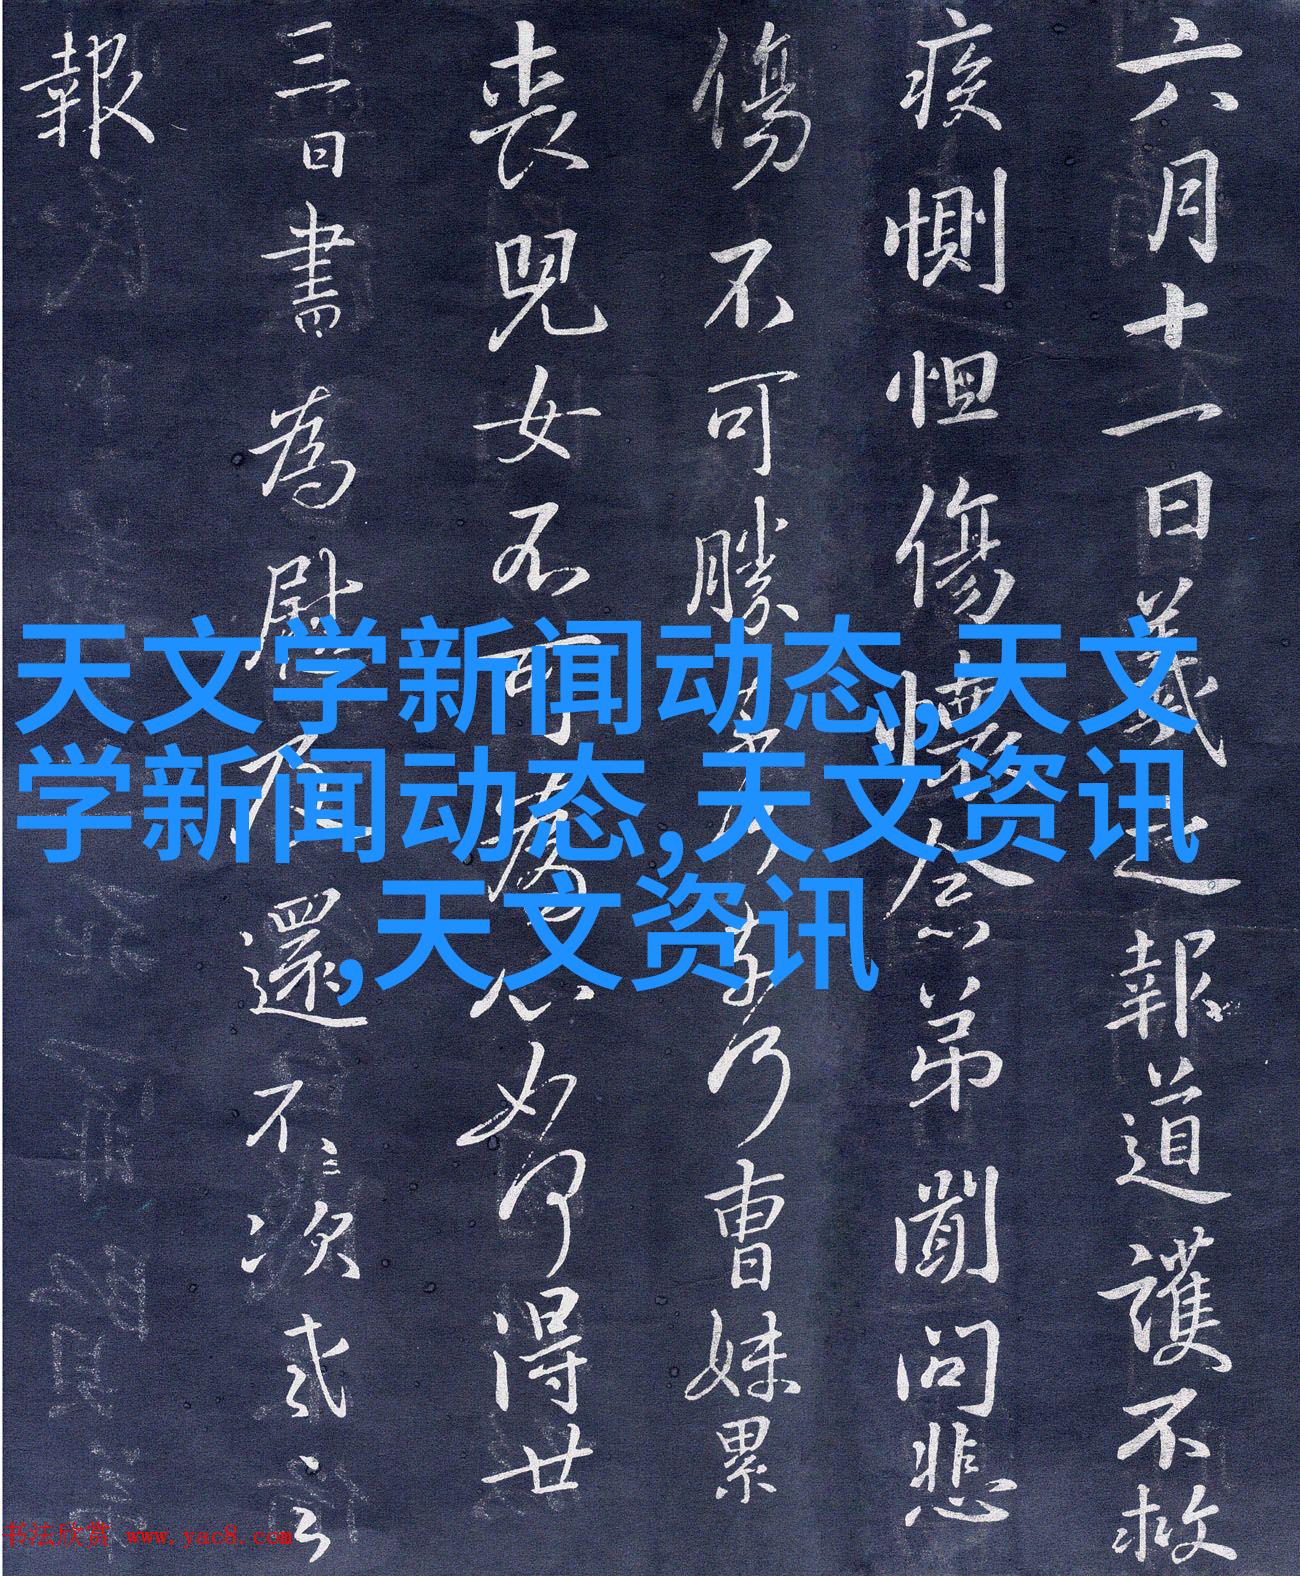 六月十一日羲之報道護不救
疾惻怛傷懷念弟聞問悲
傷不可勝乃曹妹累
喪兒女不可為心如何得廿
三日書為慰及還不次
報
天文学新闻动态,天文
学新闻动态,天文资讯
,天文资讯
书法欣赏 www.yac8.com